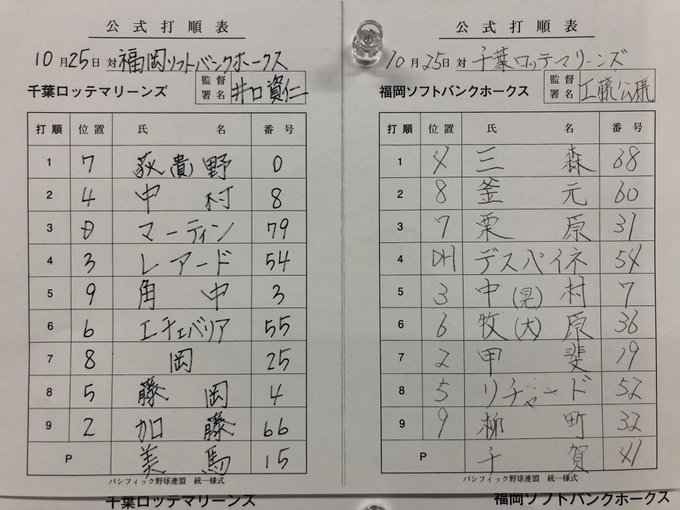 公式打順表
10月25日 対 福岡ソフトバンクホークス
千葉ロッテマリーンズ 監督署名 井口資仁
打順 位置 氏名 番号
1 7 荻(貴)野 0
2 4 中村 8
3 D マーティン 79
4 3 レアード 54
5 9 角中 3
6 6 エチェバリア 55
7 8 岡 25
8 5 藤岡 4
9 2 加藤 66
P 美馬 15
パシフィック野球連盟 統一様式
千葉ロッテマリーンズ
公式打順表
10月25日 対 千葉ロッテマリーンズ
福岡ソフトバンクホークス 監督署名 工藤公康
打順 位置 氏名 番号
1 4 三森 68
2 8 釜元 60
3 7 栗原 31
4 DH デスパイネ 54
5 3 中(晃)村 7
6 6 牧(大)原 36
7 2 甲斐 19
8 5 リチャード 52
9 9 柳町 32
P 千賀 41
パシフィック野球連盟 統一様式
福岡ソフトバンクホークス